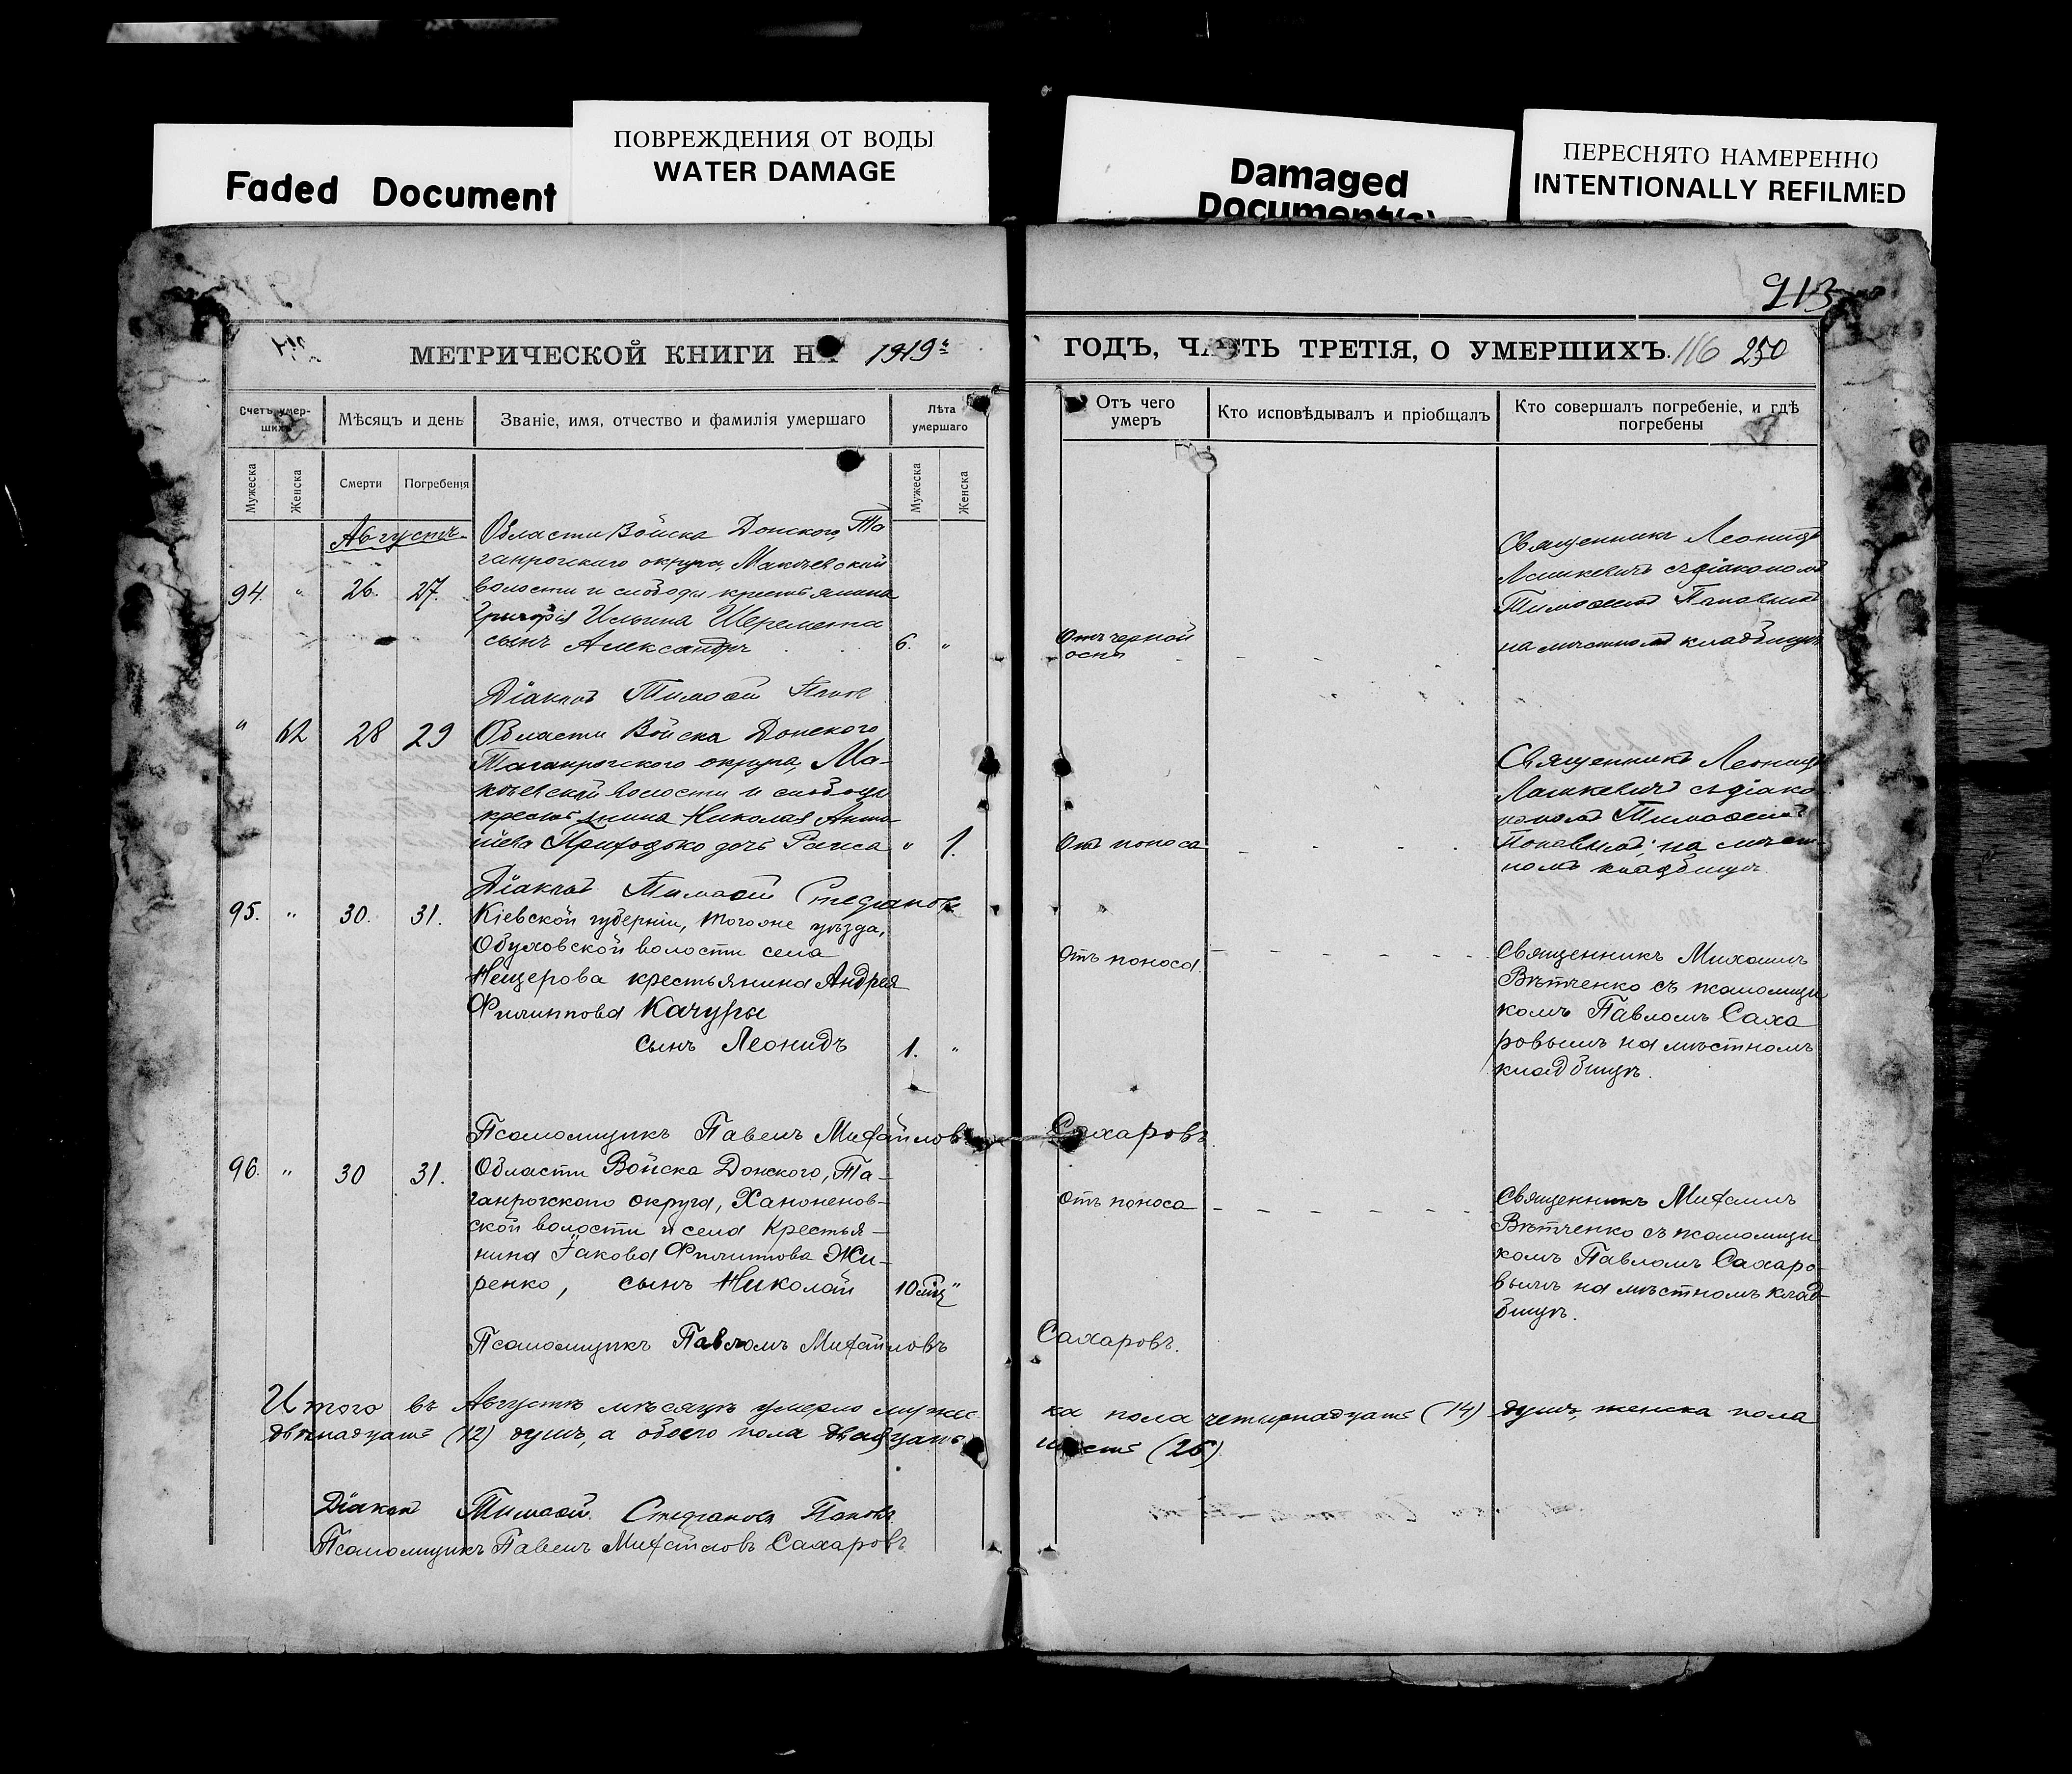 Faded Document
ПОВРЕЖДЕНИЯ ОТ ВОДЫ
WATER DAMAGE
Damaged
Document(s)
ПЕРЕСНЯТО НАМЕРЕННО
INTENTIONALLY REFILMED
913
МЕТРИЧЕСКОЙ КНИГИ НА 1919 г.
Счетъ умер-
шихъ
Мѣсяцъ и день
Званіе, имя, отчество и фамилія умершаго
Лѣта
умершаго
Мужеска
Женска
Смерти
Погребенія
Мужеска
Женска
Августъ
94. " 26. 27.
Области Войска Донского, Та
ганрогскаго округа, Макѣевской
волости и слободы крестьянина
Григорія Ильина Шеремета
сынъ Александръ 6. "
Діаконъ Тимоѳей
" 62 28 29
Области Войска Донского
Таганрогскаго округа, Ма-
кѣевской волости и слободы
крестьянина Николая
Приходько дочь Раиса " 1.
Діаконъ Тимоѳей Стефановъ
95. " 30. 31.
Кіевской губерніи, того же уѣзда,
Обуховской волости села
Нещерова крестьянина Андрея
Филиппова Качуры
сынъ Леонидъ 1. "
Псаломщикъ Павелъ Михайловъ
96. " 30 31.
Области Войска Донского, Та-
ганрогскаго округа, Ханоненов-
ской волости и села крестья-
нина Іакова Филиппова Жи-
ренко, сынъ Николай 10 мц "
Псаломщикъ Павломъ Михайловъ
Итого въ Августѣ мѣсяцѣ умерло мужес
двѣнадцать (12) душъ, а обоего пола двадцать
Діаконъ Тимоѳей Стефановъ Поповъ
Псаломщикъ Павелъ Михайловъ Сахаровъ
ГОДЪ, ЧАСТЬ ТРЕТІЯ, О УМЕРШИХЪ. 116 250
Отъ чего
умеръ
Кто исповѣдывалъ и пріобщалъ
Кто совершалъ погребеніе, и гдѣ
погребены
Отъ черной
оспы
Священникъ Леонидъ
Лашкевичъ съ діакономъ
Тимоѳеемъ Поповымъ
на мѣстномъ кладбищѣ
Отъ поноса
Священникъ Леонидъ
Лашкевичъ съ діако
номъ Тимоѳеемъ
Поповымъ, на мѣст
номъ кладбищѣ
Отъ поноса
Священникъ Михаилъ
Вѣтченко съ псаломщи
комъ Павломъ Саха
ровымъ на мѣстномъ
кладбищѣ.
Сахаровъ
Отъ поноса
Священникъ Михаилъ
Вѣтченко съ псаломщи
комъ Павломъ Сахаро-
вымъ на мѣстномъ клад-
бищѣ.
Сахаровъ.
ка пола четырнадцать (14) душъ, женска пола
шесть (26)